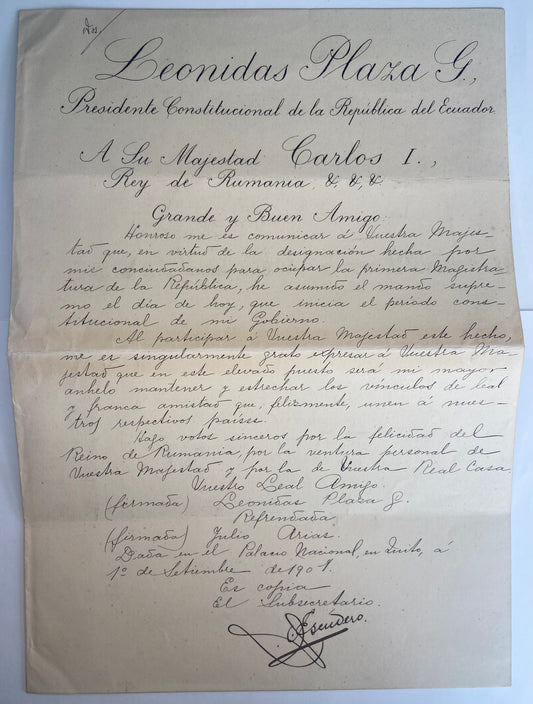 Leonidas Plaza G.,
Presidente Constitucional de la República del Ecuador
A Su Majestad Carlos I.,
Rey de Rumania, &, &, &,
Grande y Buen Amigo:
Honroso me es comunicar á Vuestra Majes-
tad que, en virtud de la designación hecha por
mis conciudadanos para ocupar la primera Magistra-
tura de la República, he asumido el mando supre-
mo el día de hoy, que inicia el período cons-
titucional de mi Gobierno.
Al participar á Vuestra Majestad este hecho,
me es singularmente grato expresar á Vuestra Ma-
jestad que en este elevado puesto será mi mayor
anhelo mantener y estrechar los vínculos de leal
y franca amistad que, felizmente, unen á nues-
tros respectivos países.
Hago votos sinceros por la felicidad del
Reino de Rumania, por la ventura personal de
Vuestra Majestad y por la de Vuestra Real Casa.
Vuestro Leal Amigo.
(firmada) Leonidas Plaza G.
Refrendada,
(firmada) Julio Arias.
Dada en el Palacio Nacional, en Quito, á
1º de Setiembre de 1901.
Es copia
El Subsecretario.
Escudero.